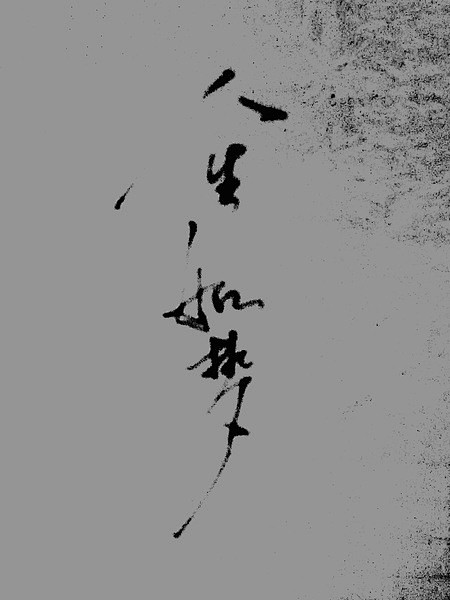 人生如梦